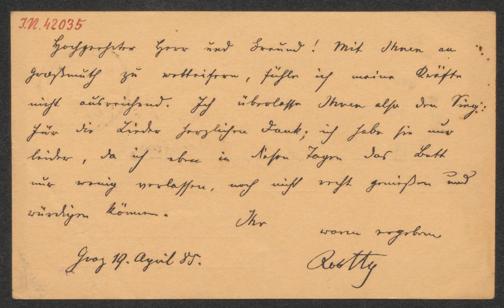 I.N. 42035
Hochgeehrter Herr und Freund! Mit Ihnen an
Großmuth zu wetteifern, fühle ich meine Kräfte
nicht ausreichend. Ich überlasse Ihnen also den Sieg.
Für die Lieder herzlichen Dank; ich habe sie nur
leider, da ich eben in diesen Tagen das Bett
nur wenig verlassen, noch nicht recht genießen und
würdigen können.
Ihr
warm ergebener
Graz 19. April 85.